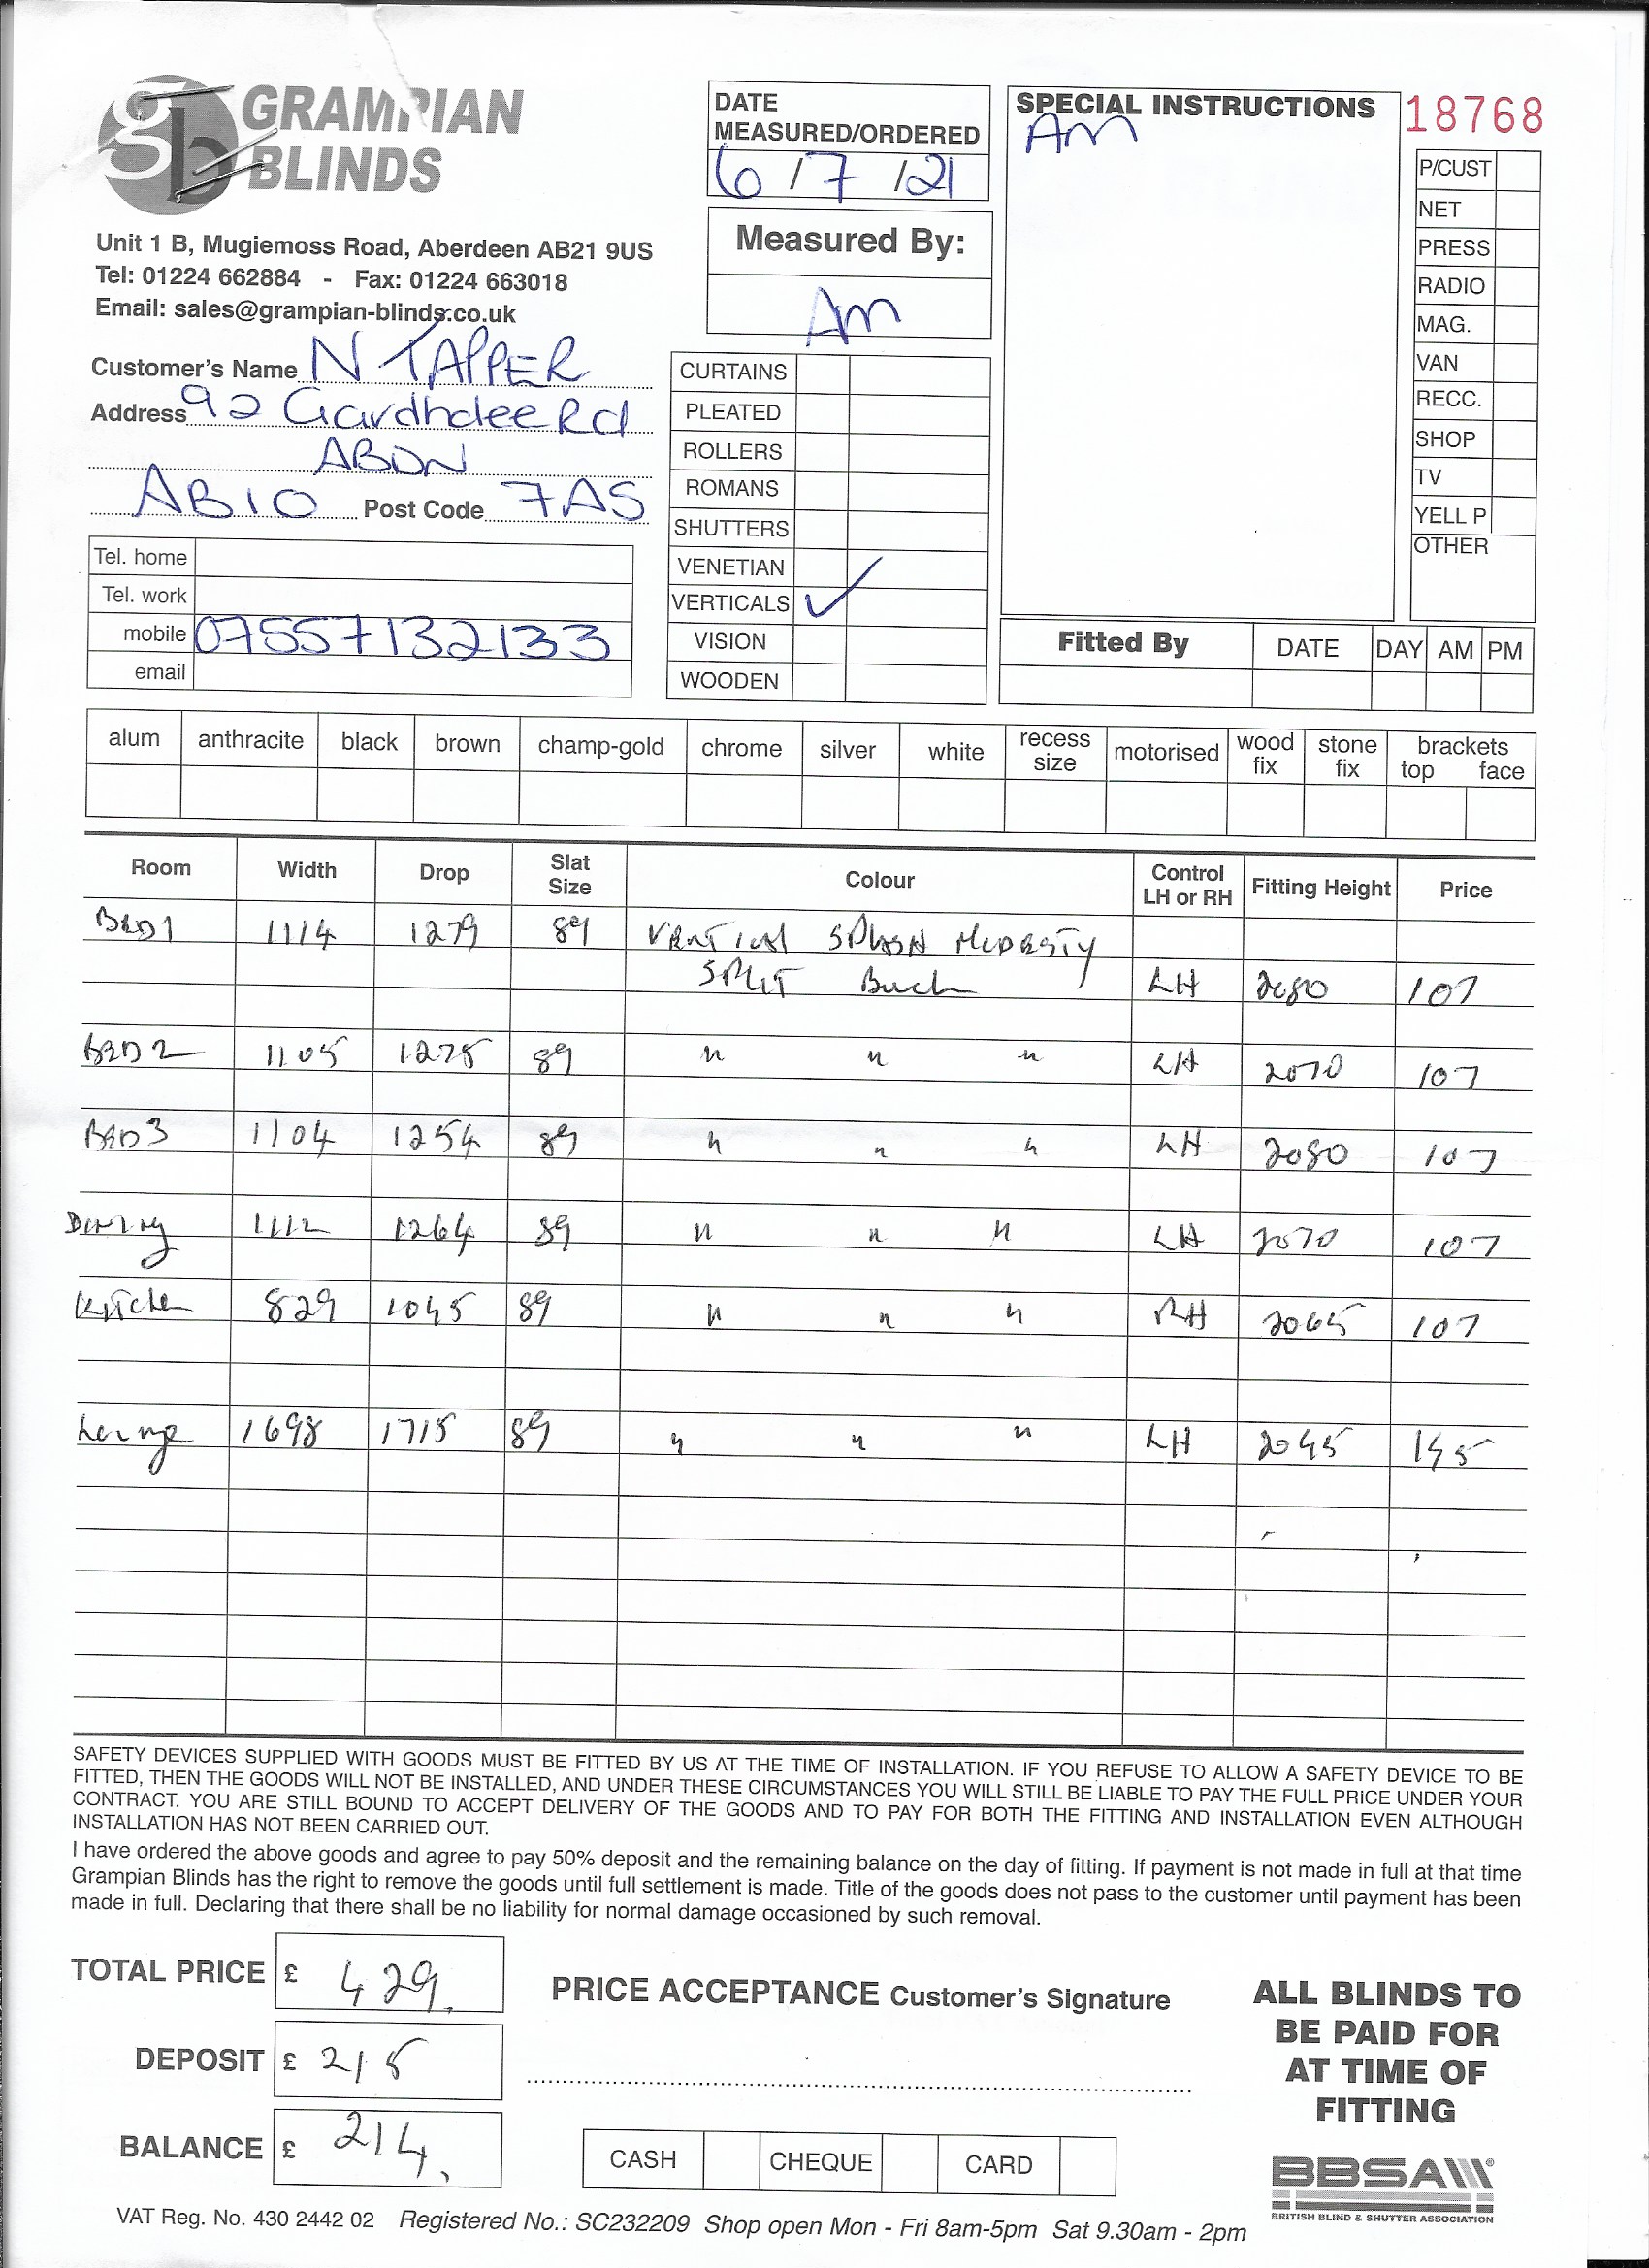 GRAMPIAN
BLINDS
Unit 1 B, Mugiemoss Road, Aberdeen AB21 9US
Tel: 01224 662884 - Fax: 01224 663018
Email: sales@grampian-blinds.co.uk
Customer's Name N TAPPER
Address 92 Garthdee Rd
ABDN
AB10 Post Code 7AS
Tel. home
Tel. work
mobile 07557132133
email
DATE
MEASURED/ORDERED
6/7/21
Measured By:
AM
CURTAINS
PLEATED
ROLLERS
ROMANS
SHUTTERS
VENETIAN
VERTICALS ✓
VISION
WOODEN
SPECIAL INSTRUCTIONS
AM
18768
P/CUST
NET
PRESS
RADIO
MAG.
VAN
RECC.
SHOP
TV
YELL P
OTHER
Fitted By DATE DAY AM PM
alum anthracite black brown champ-gold chrome silver white recess size motorised wood fix stone fix brackets top face
Room Width Drop Slat Size Colour Control LH or RH Fitting Height Price
BED1 1114 1279 89 VERTICAL SPLASH MODESTY
SPLIT LH 2080 107
BED 2 1105 1275 89 " " " LH 2070 107
BED 3 1104 1254 89 " " " LH 2080 107
Dining 1112 1264 89 " " " LH 2070 107
Kitchen 829 1045 89 " " " RH 2065 107
Lounge 1698 1715 89 " " " LH 2045
SAFETY DEVICES SUPPLIED WITH GOODS MUST BE FITTED BY US AT THE TIME OF INSTALLATION. IF YOU REFUSE TO ALLOW A SAFETY DEVICE TO BE
FITTED, THEN THE GOODS WILL NOT BE INSTALLED, AND UNDER THESE CIRCUMSTANCES YOU WILL STILL BE LIABLE TO PAY THE FULL PRICE UNDER YOUR
CONTRACT. YOU ARE STILL BOUND TO ACCEPT DELIVERY OF THE GOODS AND TO PAY FOR BOTH THE FITTING AND INSTALLATION EVEN ALTHOUGH
INSTALLATION HAS NOT BEEN CARRIED OUT.
I have ordered the above goods and agree to pay 50% deposit and the remaining balance on the day of fitting. If payment is not made in full at that time
Grampian Blinds has the right to remove the goods until full settlement is made. Title of the goods does not pass to the customer until payment has been
made in full. Declaring that there shall be no liability for normal damage occasioned by such removal.
TOTAL PRICE £ 429.
DEPOSIT £ 215
BALANCE £ 214.
PRICE ACCEPTANCE Customer's Signature
CASH CHEQUE CARD
ALL BLINDS TO
BE PAID FOR
AT TIME OF
FITTING
BBSA
BRITISH BLIND & SHUTTER ASSOCIATION
VAT Reg. No. 430 2442 02 Registered No.: SC232209 Shop open Mon - Fri 8am-5pm Sat 9.30am - 2pm